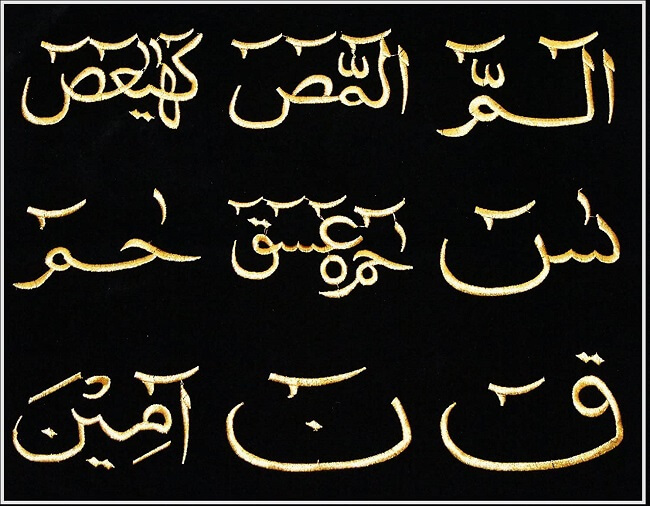 الٓمّٓ الٓمّٓصٓ كٓهٰيٰعٓصٓ
يٰسٓ حٰمٓ عٓسٓقٓ حٰمٓ
قٓ نٓ آمِيْنَ